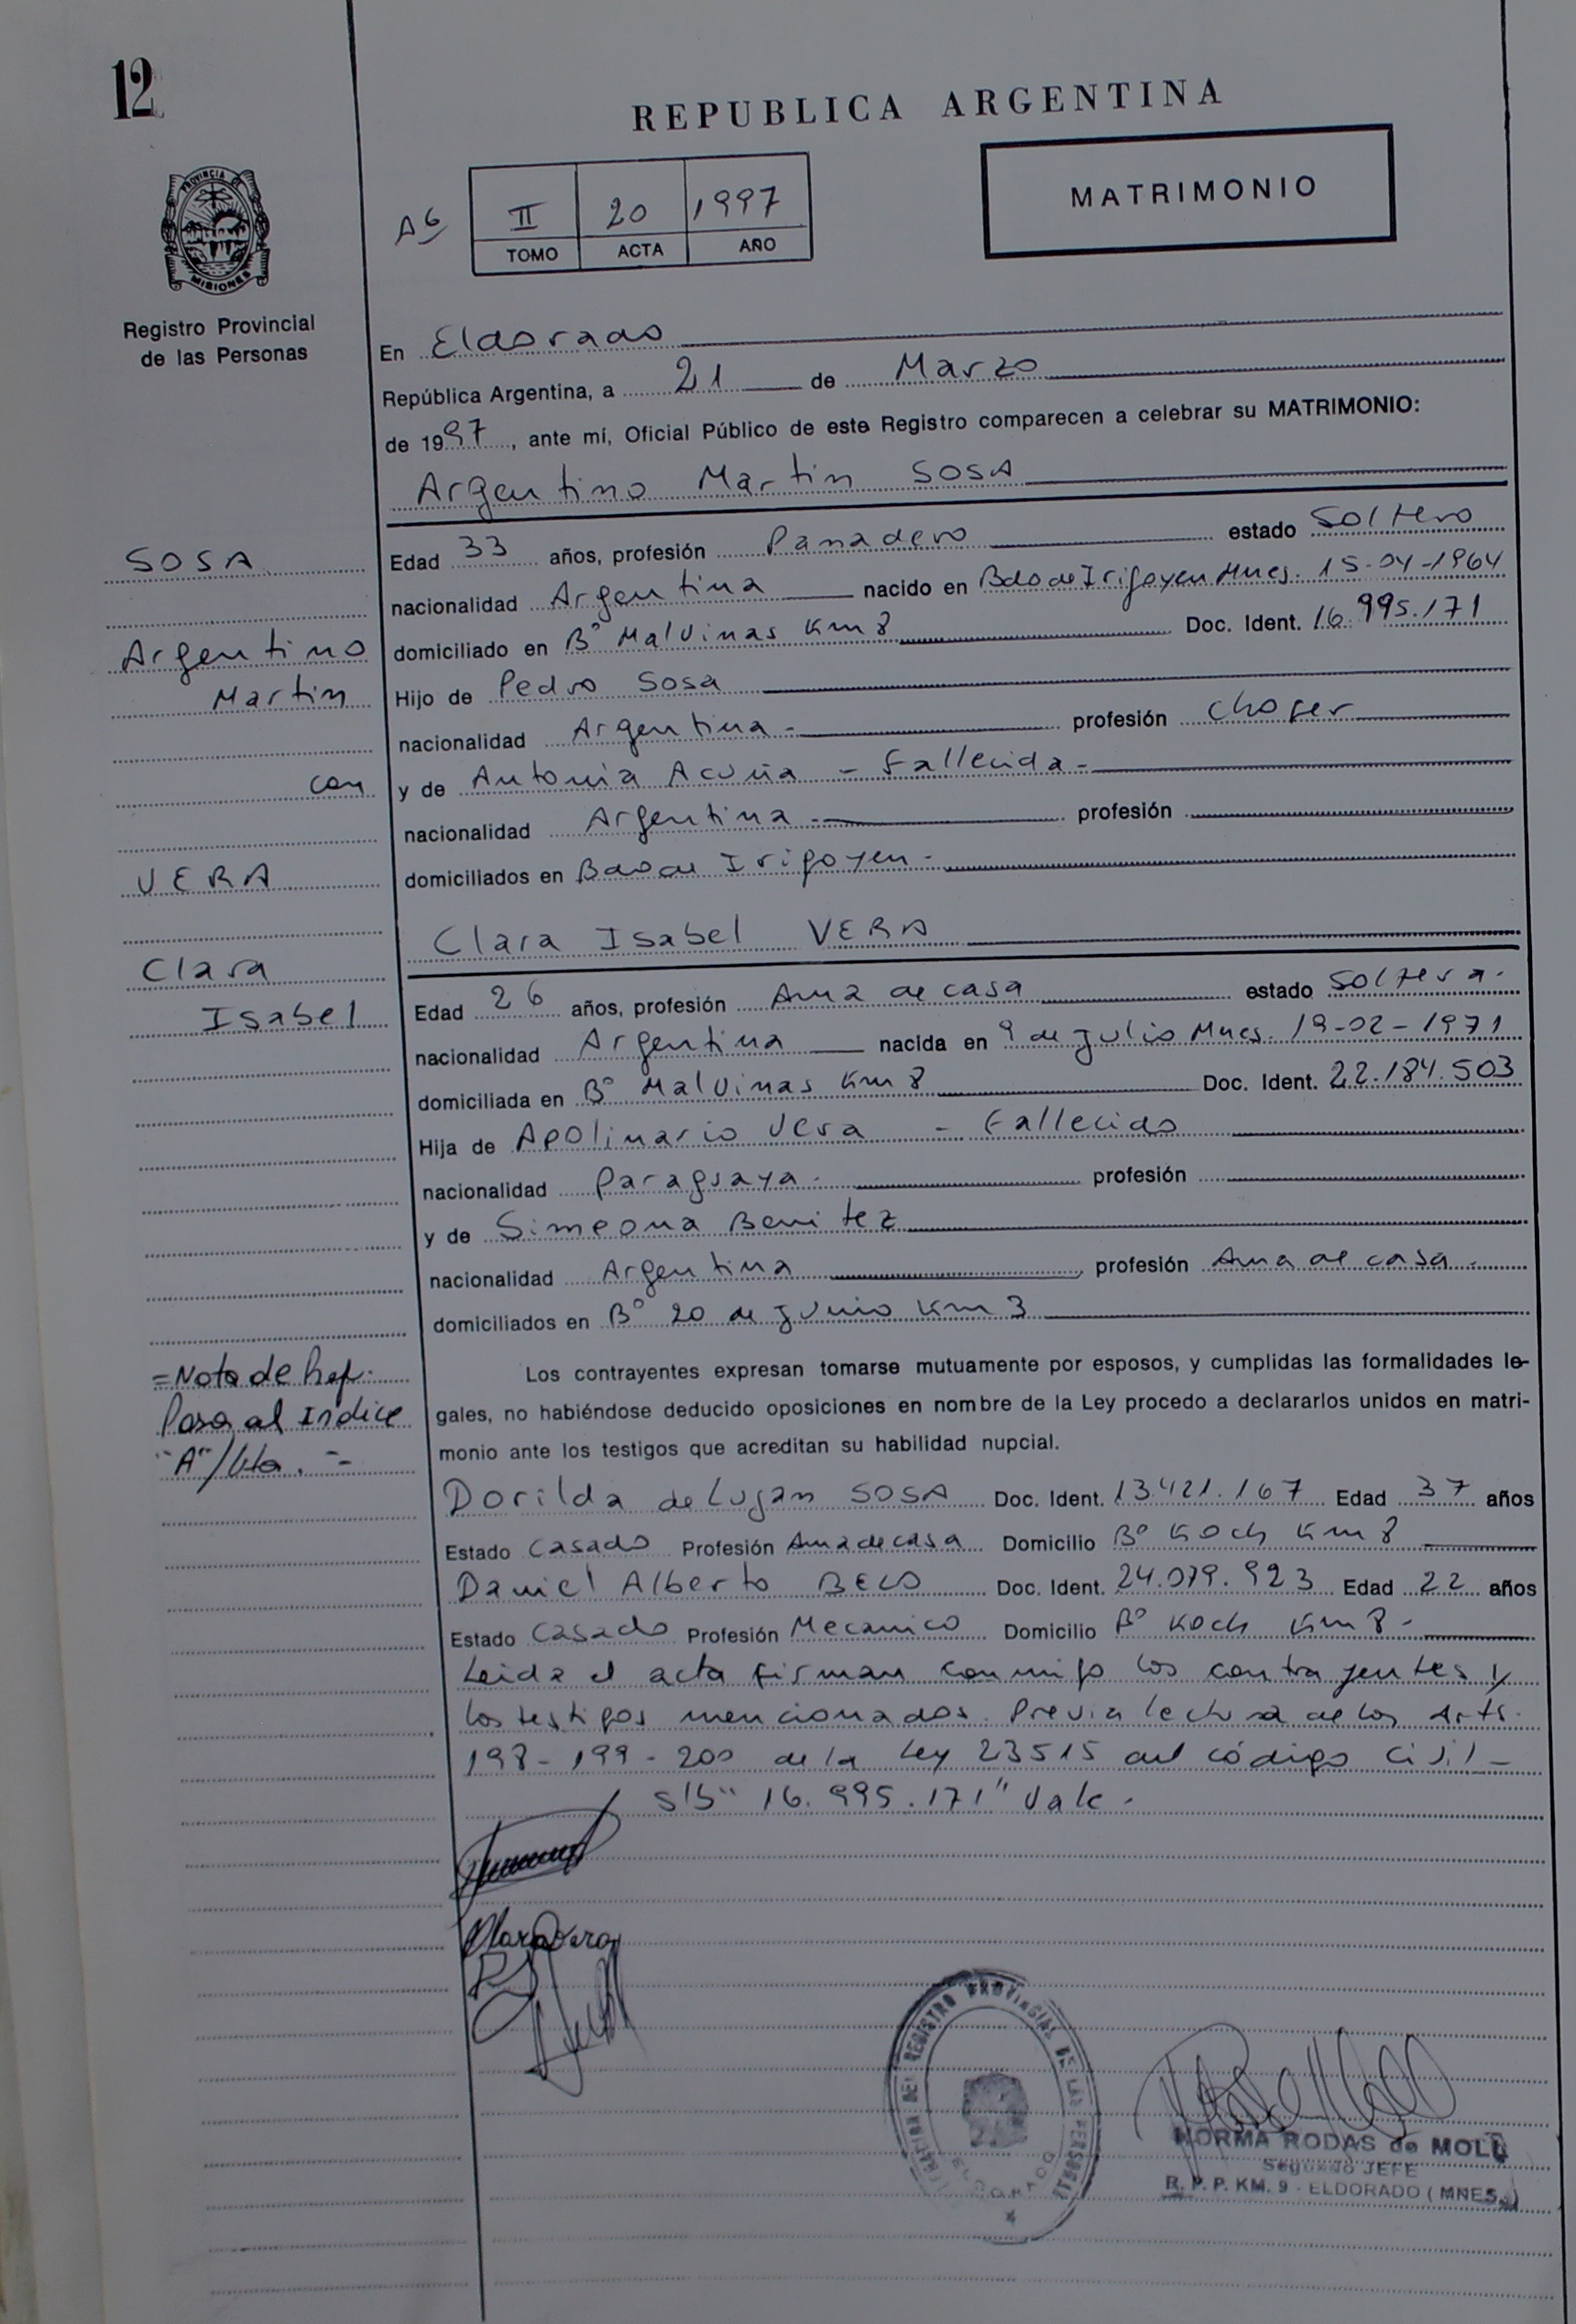 12
REPUBLICA ARGENTINA
MATRIMONIO
II 20 1997
TOMO ACTA AÑO
PROVINCIA DE
MISIONES
Registro Provincial
de las Personas
En Eldorado
República Argentina, a 21 de Marzo
de 1997, ante mí, Oficial Público de este Registro comparecen a celebrar su MATRIMONIO:
Argentino Martin SOSA
SOSA
Argentino
Martin
con
VERA
Clara
Isabel
Edad 33 años, profesión Panadero estado Soltero
nacionalidad Argentina nacido en Bdo de Irigoyen Mnes. 15-04-1964
domiciliado en B° Malvinas Km 8 Doc. Ident. 16.995.171
Hijo de Pedro Sosa
nacionalidad Argentina - profesión Chofer
y de Antonia Acuña - Fallecida -
nacionalidad Argentina - profesión
domiciliados en Bdo de Irigoyen -
Clara Isabel VERA
Edad 26 años, profesión Ama de casa estado Soltera.
nacionalidad Argentina nacida en 9 de Julio Mnes. 19-02-1971
domiciliada en B° Malvinas Km 8 Doc. Ident. 22.184.503
Hija de Apolinario Vera - Fallecido
nacionalidad Paraguaya. profesión
y de Simeona Benitez
nacionalidad Argentina profesión Ama de casa.
domiciliados en B° 20 de Junio Km 3
=Nota de Ref.
Pasa al Indice
"A"/Vta. =
Los contrayentes expresan tomarse mutuamente por esposos, y cumplidas las formalidades le-
gales, no habiéndose deducido oposiciones en nombre de la Ley procedo a declararlos unidos en matri-
monio ante los testigos que acreditan su habilidad nupcial.
Dorilda de Lujan SOSA Doc. Ident. 13.421.167 Edad 37 años
Estado Casado Profesión Ama de casa Domicilio B° Koch Km 8
Daniel Alberto Doc. Ident. 24.079.923 Edad 22 años
Estado Casado Profesión Mecanico Domicilio B° Koch Km 8 -
Leida el acta firman conmigo los contrayentes y
los testigos mencionados. Previa lectura de los Arts.
198-199-200 de la Ley 23515 del código Civil -
S/b "16.995.171" Vale.
Clara Vera
REGISTRO PROVINCIAL DE LAS PERSONAS
ELDORADO
NORMA RODAS de MOLL
Segundo JEFE
R. P. P. KM. 9 - ELDORADO ( MNES.)